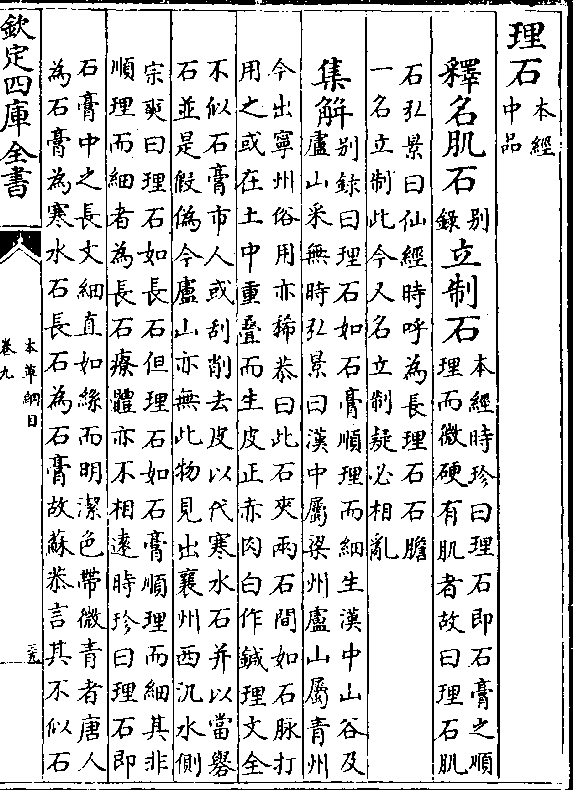 理石本經
中品
釋名肌石別錄立制石本經時珍曰理石即石膏之順
理而微硬有肌者故曰理石肌
石弘景曰仙經時呼為長理石石膽
一名立制此今又名立制疑必相亂
集解别録曰理石如石膏順理而細生漢中山谷及
盧山采無時弘景曰漢中屬梁州盧山屬青州
今出寧州俗用亦稀恭曰此石夾兩石間如石脉打
用之或在土中重疊而生皮正赤肉白作鍼理文全
不似石膏市人或刮削去皮以代寒水石并以當礜
石並是假偽今盧山亦無此物見出襄州西汎水側
宗奭曰理石如長石但理石如石膏順理而細其非
順理而細者為長石療體亦不相遠時珍曰理石即
石膏中之長文細直如絲而明潔色帶微青者唐人
為石膏為寒水石長石為石膏故蘇恭言其不似石
欽定四庫全書
本草綱目
卷九